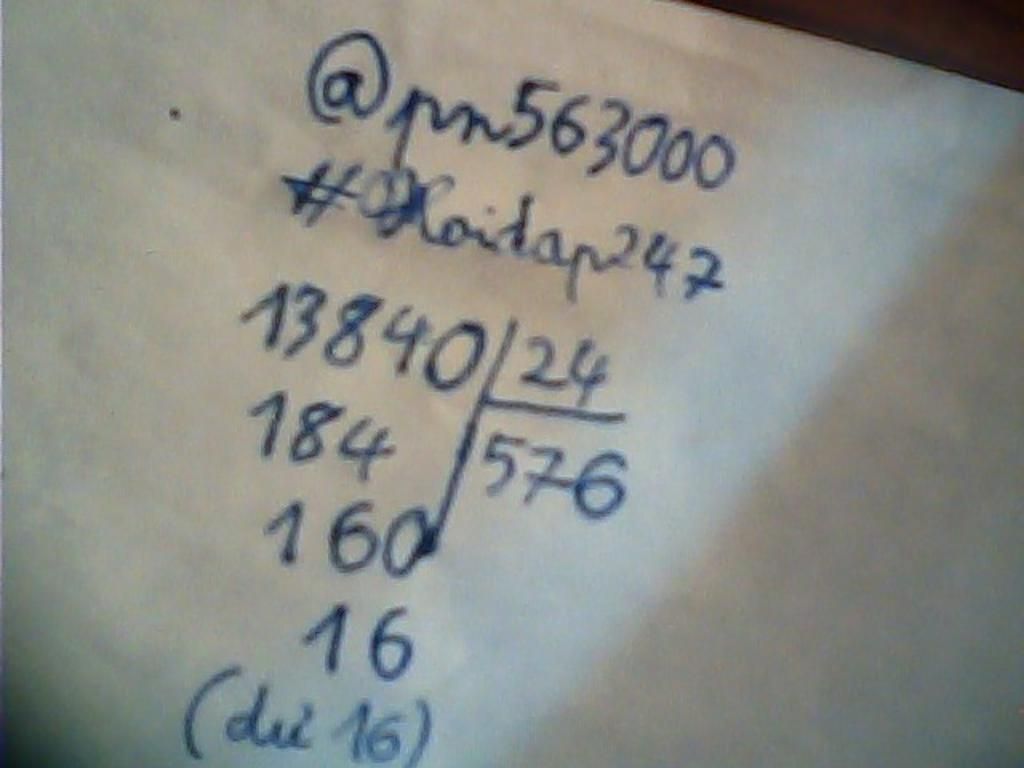 @pn563000
#Hoidap247
13840 24
184 576
160
16
(dư 16)